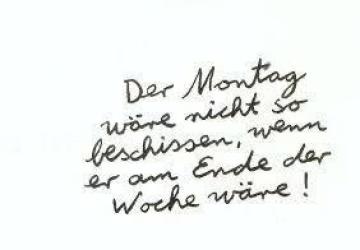 Der Montag
wäre nicht so
beschissen, wenn
er am Ende der
Woche wäre!